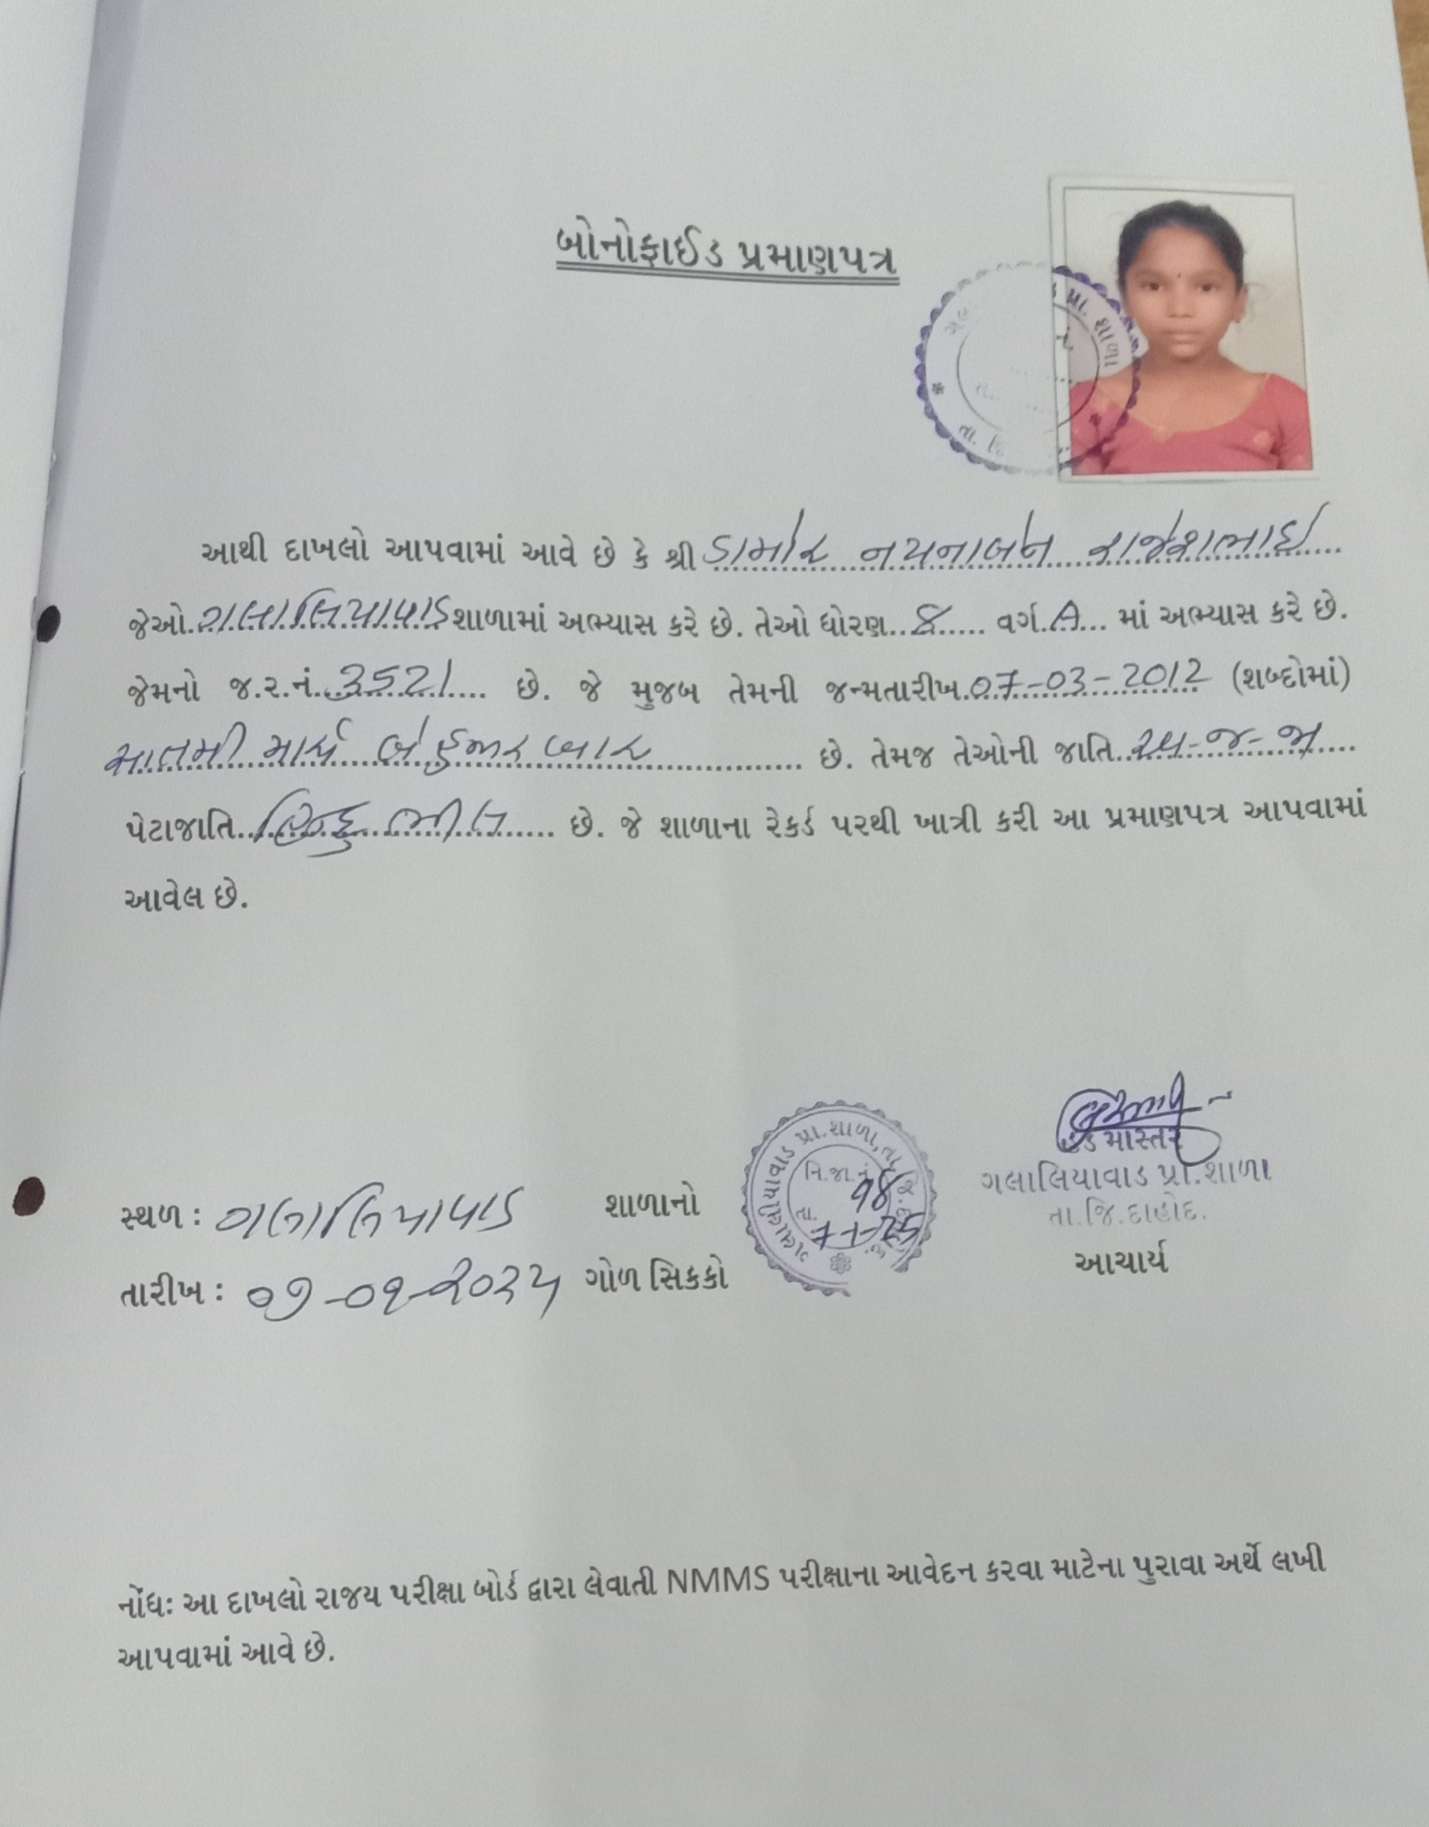 બોનોફાઈડ પ્રમાણપત્ર
પ્રા. શાળા
તા. જિ
આથી દાખલો આપવામાં આવે છે કે શ્રી ડામોર નયનાબેન રાજેશભાઈ
જેઓ ગલાલિયાવાડ શાળામાં અભ્યાસ કરે છે. તેઓ ધોરણ..8..... વર્ગ.A... માં અભ્યાસ કરે છે.
જેમનો જ.ર.નં..3521.... છે. જે મુજબ તેમની જન્મતારીખ.07-03-2012 (શબ્દોમાં)
સાતમી માર્ચ બે હજાર બાર ............ છે. તેમજ તેઓની જાતિ..અ-જ-જા....
પેટાજાતિ..હિન્દુ ભીલ..... છે. જે શાળાના રેકર્ડ પરથી ખાત્રી કરી આ પ્રમાણપત્ર આપવામાં
આવેલ છે.
હેડ માસ્તર
ગલાલિયાવાડ પ્રા.શાળા
તા.જિ.દાહોદ.
આચાર્ય
સ્થળ : ગલાલિયાવાડ શાળાનો
તારીખ : ૦૭-૦૧-૨૦૨૫ ગોળ સિક્કો
ગલાલીયાવાડ પ્રા.શાળા, તા.
નિ.જા.નં. 98
તા. 7-1-25
નોંધઃ આ દાખલો રાજય પરીક્ષા બોર્ડ દ્વારા લેવાતી NMMS પરીક્ષાના આવેદન કરવા માટેના પુરાવા અર્થે લખી
આપવામાં આવે છે.